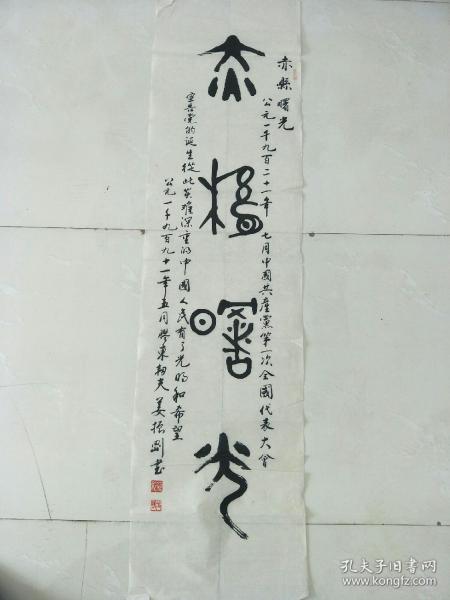 赤县曙光
赤縣曙光
公元一千九百二十一年七月中國共產黨第一次全國代表大會
宣告党的诞生從此苦难深重的中國人民有了光明和希望
公元一千九百九十一年五月膠東初夫姜振刚书
孔夫子旧书网
www.kongfz.com